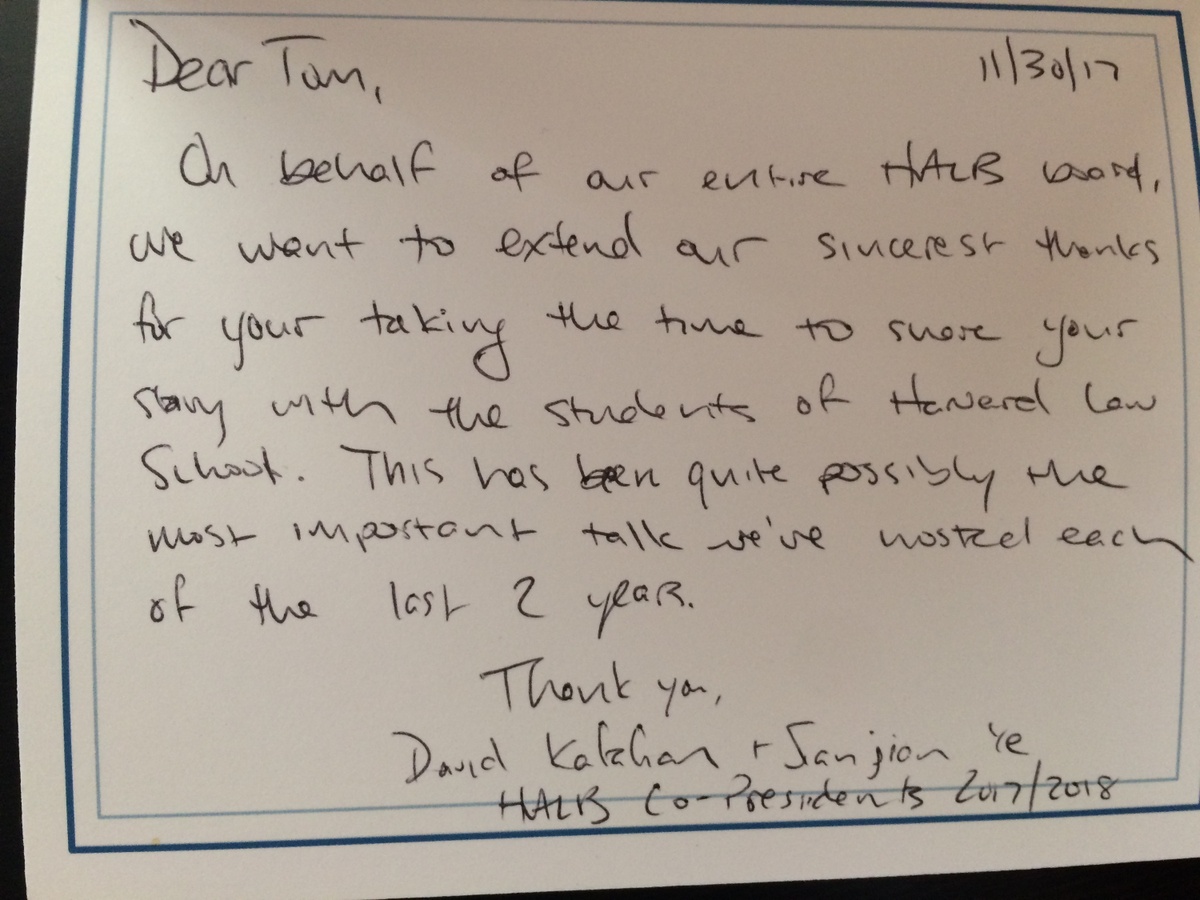 Dear Tom,
11/30/17
On behalf of our entire HALB board,
we want to extend our sincerest thanks
for your taking the time to share your
story with the students of Harvard Law
School. This has been quite possibly the
most important talk we've hosted each
of the last 2 years.
Thank you,
David + Jianjian Ye
HALB Co-Presidents 2017/2018